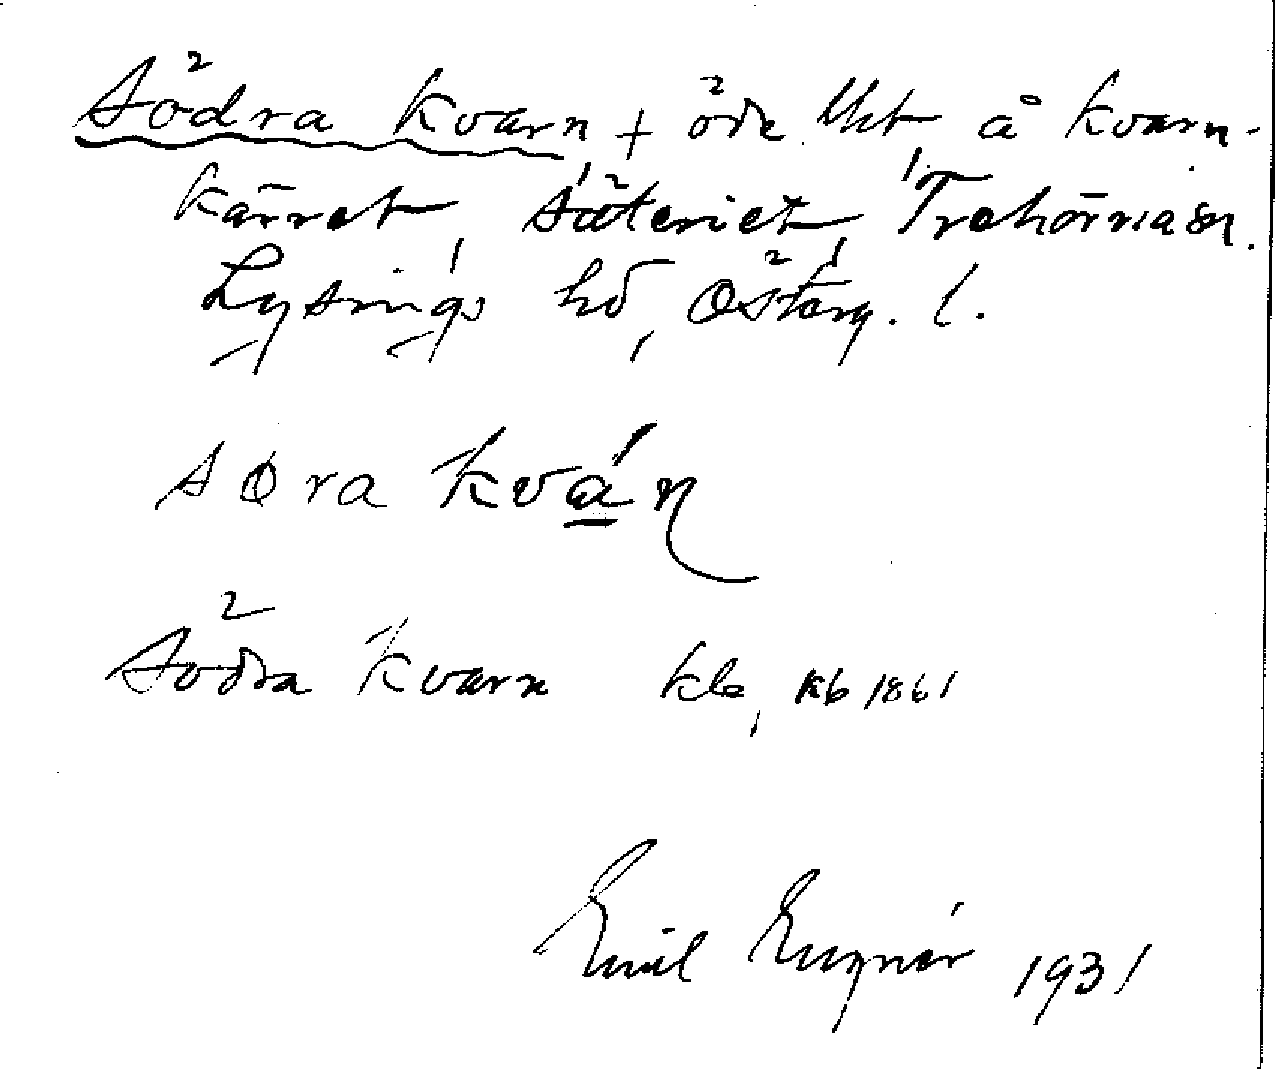 Södra Kvarn + öde lht å Kvarn-
kärret, Säteriet, Trehörna sn.
Lysings hd, Österg. l.
søra kván
Södra Kvarn kle, Kb 1861
Emil 1931